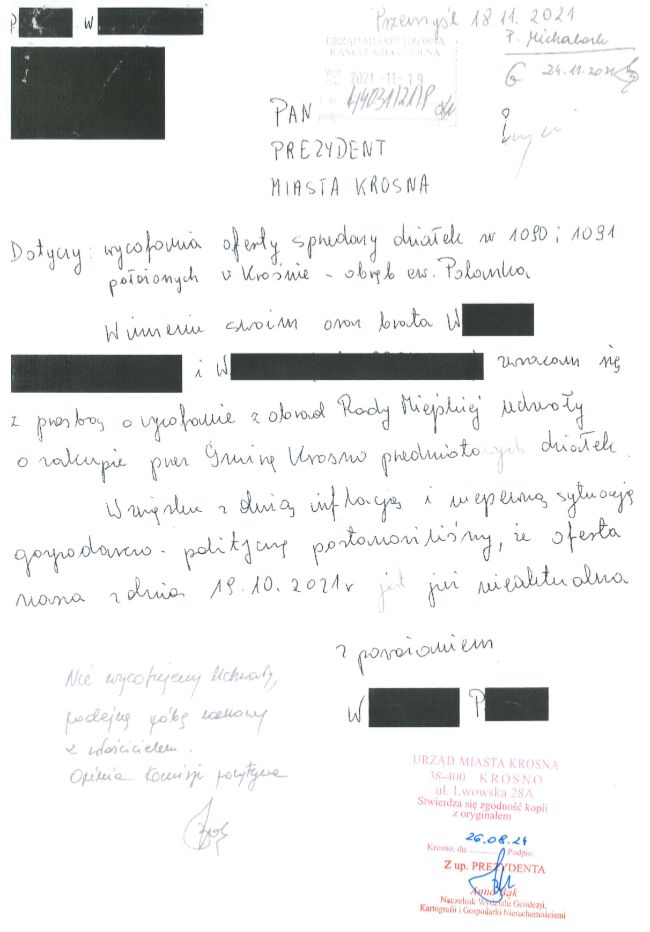 P W Przemyśl 18.11.2021
P. Michalak
URZĄD MIASTA KROSNA
KANCELARIA OGÓLNA
24.11.2021
2021-11-19
PAN
PREZYDENT
MIASTA KROSNA
Dotyczy: wycofania oferty sprzedaży działek nr 1090 i 1091
położonych w Krośnie - obręb ew. Polanka
W imieniu swoim oraz brata W
i W zwracam się
z prośbą o wycofanie z obrad Rady Miejskiej uchwały
o zakupie przez Gminę Krosno przedmiotowych działek.
W związku z dużą inflacją i niepewną sytuacją
gospodarczo-polityczną postanowiliśmy, że oferta
nasza z dnia 19.10.2021r jest już nieaktualna
Z poważaniem
W P
Nie wycofujemy Uchwały,
podejmę próbę rozmowy
z właścicielem.
Opinia Komisji pozytywna
URZĄD MIASTA KROSNA
38-400 KROSNO
ul. Lwowska 28A
Stwierdza się zgodność kopii
z oryginałem
26.08.24
Krosno, dn. ............ Podpis:
Z up. PREZYDENTA
Naczelnik Wydziału Geodezji,
Kartografii i Gospodarki Nieruchomościami